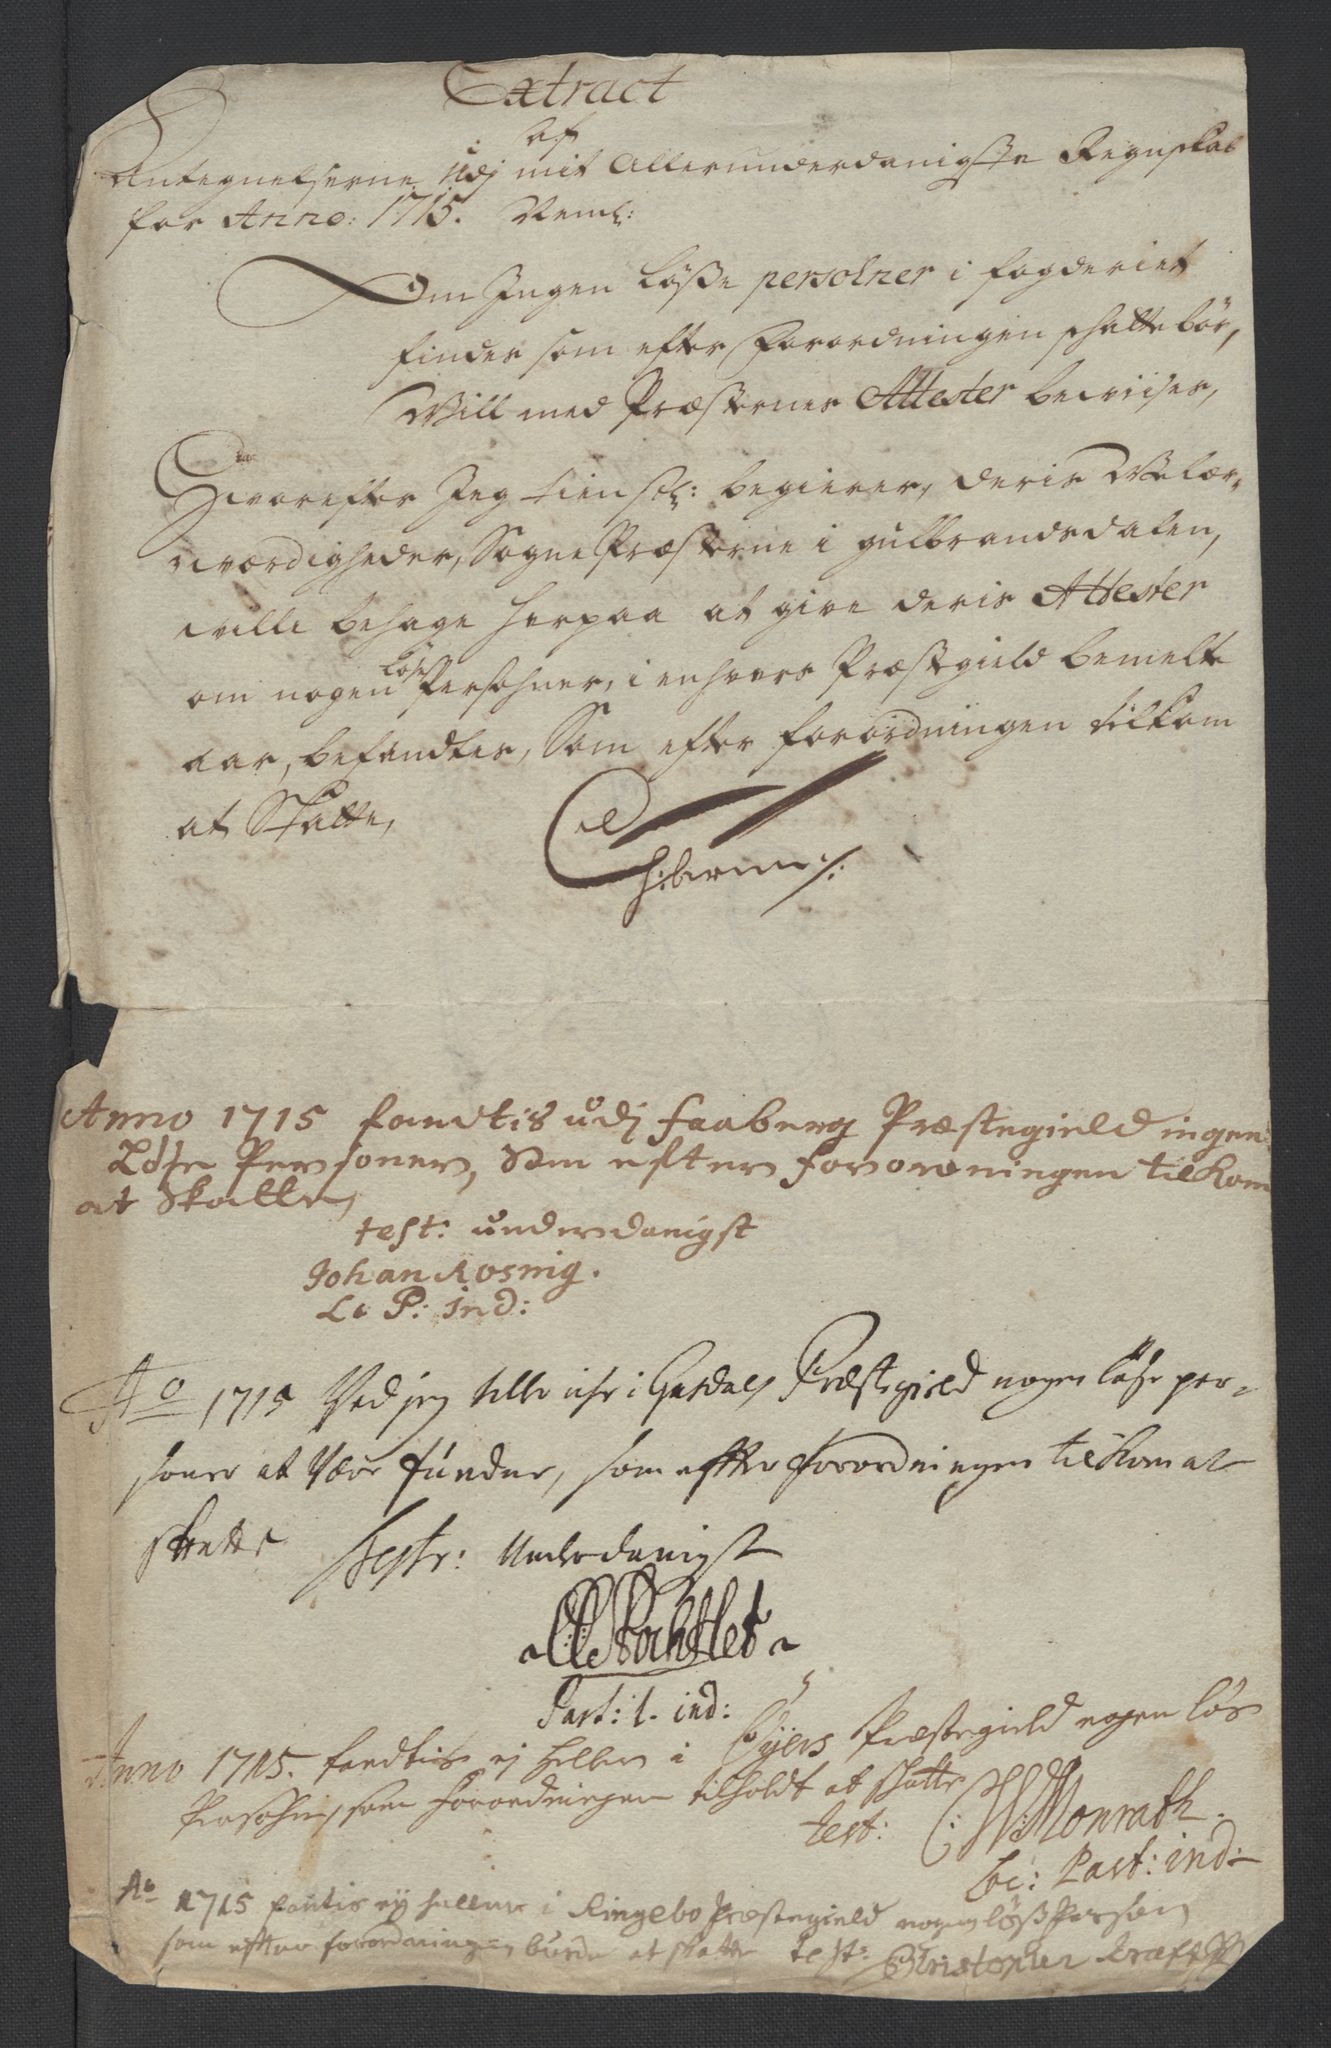 Extract
af
Antegnelserne udj mit Allerunderdanigste Regnskab
for Anno: 1715. Neml:
Om Ingen Løsse persohner i fogderiet
findes som efter Forordningen skatte bør,
Will med Præsternes Attester bevises,
Hvorefter Jeg tienstl: begierer, deris Velær¬
værdigheder, SognePræsterne i gulbrandsdalen,
ville behage herpaa at give deris Attester
om nogen Løse Persohner, i enhvers Præstegield bemelte
aar, befandtes, Som efter forordningen tilkom
at Skatte,
Anno 1715 fandtis udj faaberg Præstegield ingen
Løse Personer, Som efter forordningen tilkom
at Skatte,
test: underdanigst
Johan Rosing.
L: P: ind:
Ao 1715 Ved jeg icke i Gusdals Præstegield nogen løse per¬
soner at være funden, som effter forordningen tilkom at
skatte Test: Underdanigst
Past: l. ind:
Anno 1715. fandtis ej heller i Øyers Præstegield nogen løs
Persohn, som Forordningen tilholdt at skatte
test: C: W: Monrath.
loc: Past: ind:
Ao 1715 fantis ey hellers i Ringebo Præstegield nogen løss Person
som efter forordningen burde at skatte test: Christopher Kræft